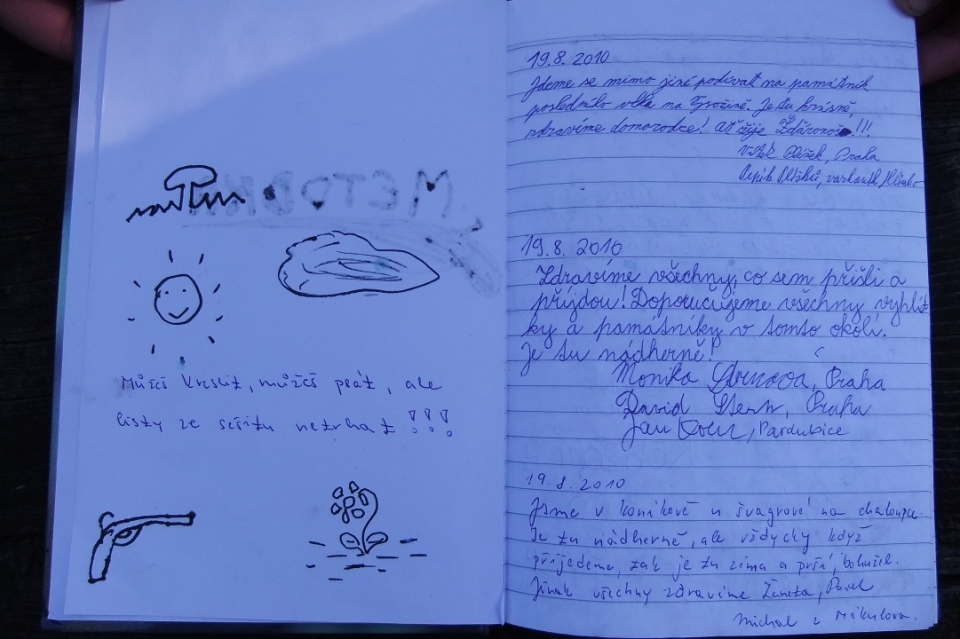 METODIKA
Můžeš kreslit, můžeš psát, ale
listy ze sešitu netrhat !!!
19.8.2010
Jdeme se mimo jiné podívat na památník
posledního vlka na Vysočině. Je tu krásně,
zdravíme domorodce! Ať žije !!!
Praha
19.8.2010
Zdravíme všechny, co sem přišli a
přijdou! Doporučujeme všechny vyhlíd-
ky a památníky v tomto okolí.
Je tu nádherně!
Monika Praha
David Praha
Jan Pardubice
19.8.2010
Jsme v Koníkově u švagrové na chaloupce.
Je tu nádherně, ale vždycky když
přijedeme, tak je tu zima a prší, bohužel.
Jinak všechny zdravíme Žaneta, Pavel
Michal z Mikulova.